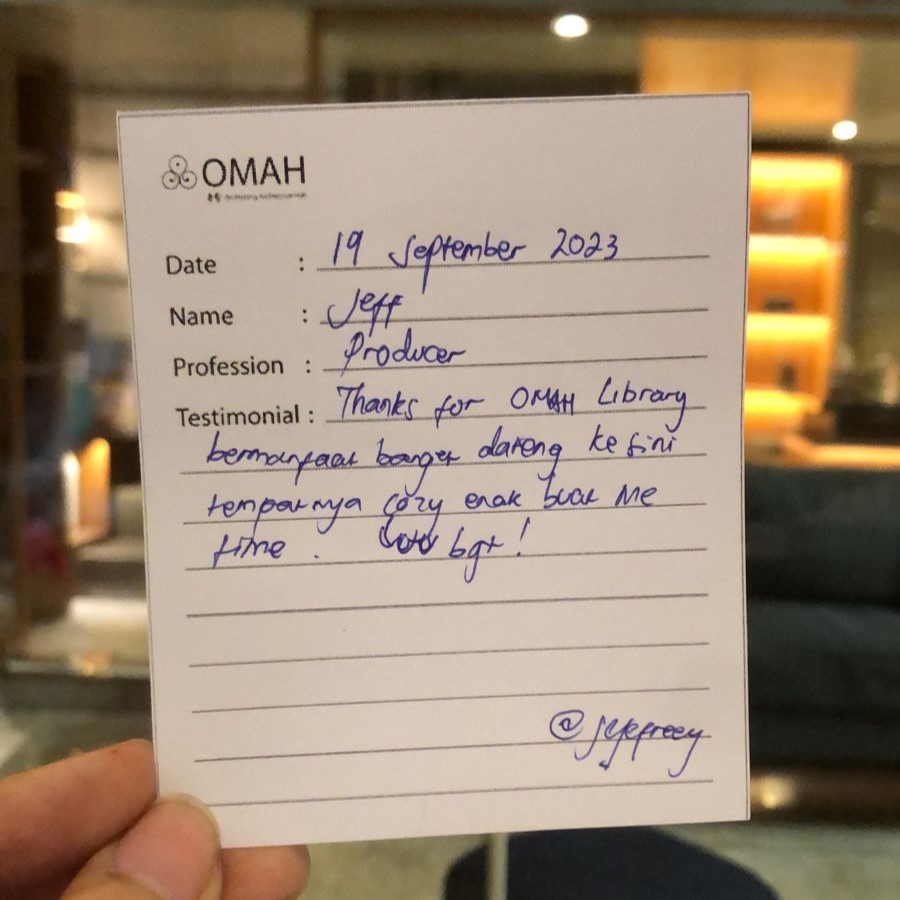 OMAH
Date : 19 September 2023
Name : Jeff
Profession : Producer
Testimonial : Thanks for OMAH Library
bermanfaat banget dateng ke sini
tempatnya cozy enak buat Me
time . bgt !